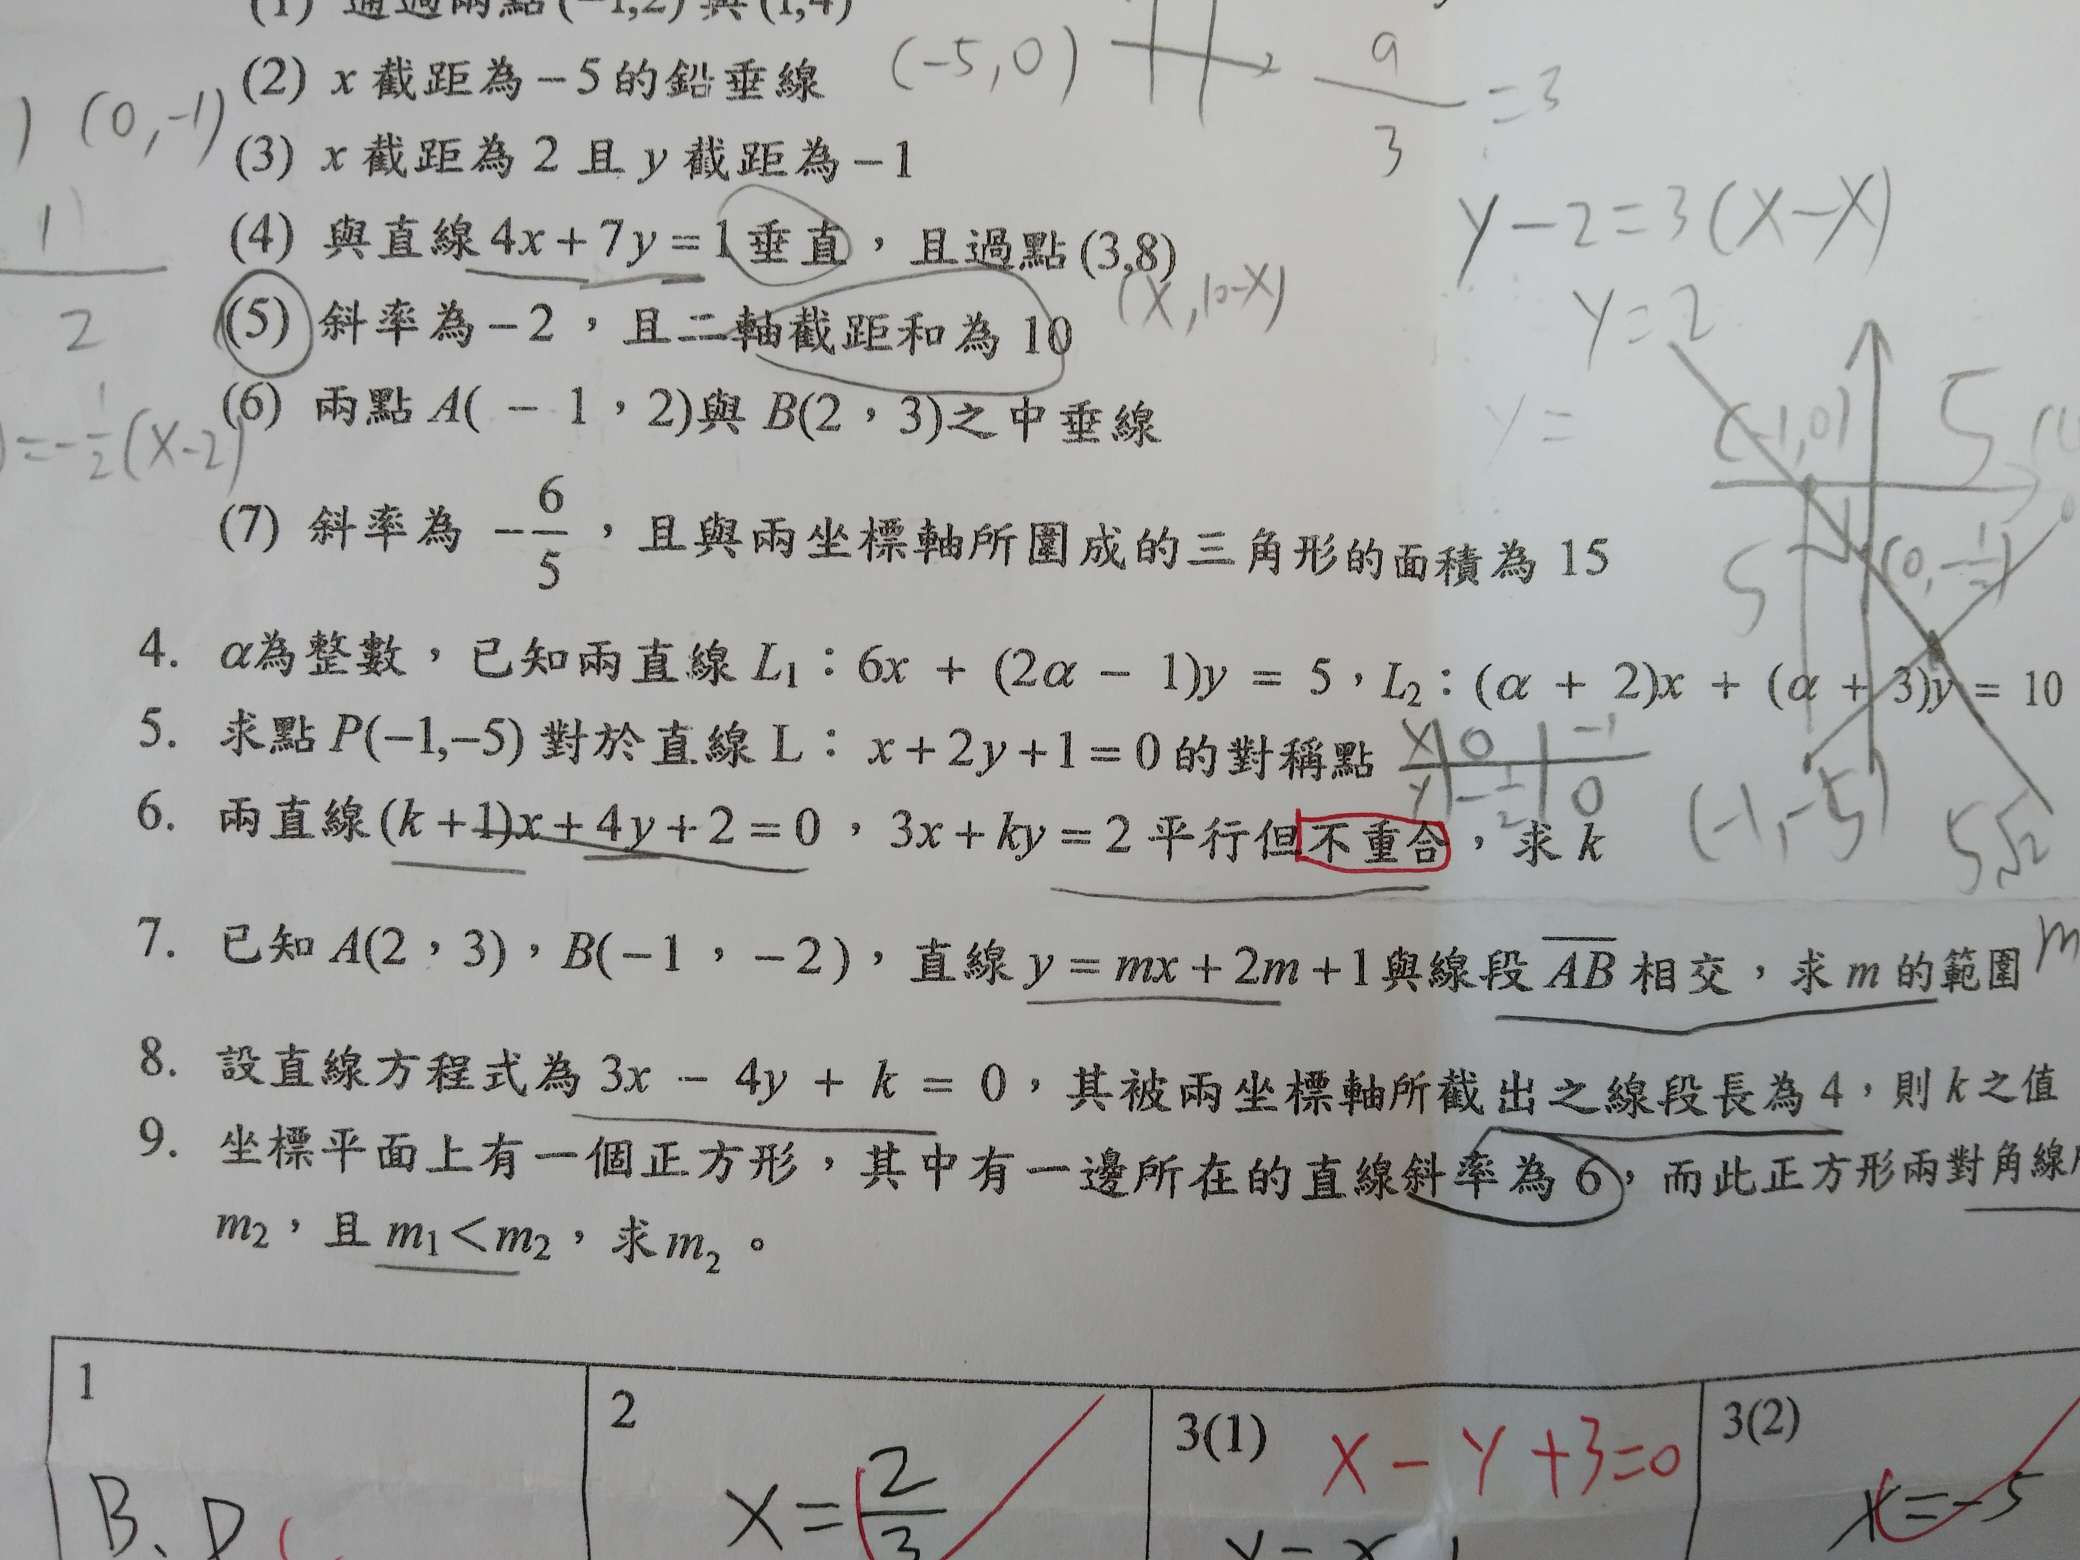 (1) 通過兩點(−1,2)與(1,4)
(2) x 截距為−5的鉛垂線
(−5,0)
9
3
=3
(0,−1)
(3) x 截距為 2 且 y 截距為−1
y−2=3(x−x)
1
2
(4) 與直線 4x+7y=1 垂直，且過點(3,8)
(x,10-x)
y=2
(5) 斜率為−2，且二軸截距和為 10
(6) 兩點 A( − 1，2)與 B(2，3)之中垂線
)=-1/2(x-2)
y=
(-1,0)
5
(7) 斜率為 −6/5，且與兩坐標軸所圍成的三角形的面積為 15
5
(0,-1/2)
4. α為整數，已知兩直線 L₁：6x + (2α − 1)y = 5，L₂：(α + 2)x + (α + 3)y = 10
5. 求點 P(−1,−5) 對於直線 L： x+2y+1=0 的對稱點
x 0 -1
y -1/2 0
(-1,-5)
5√2
6. 兩直線(k+1)x+4y+2=0，3x+ky=2 平行但不重合，求 k
7. 已知 A(2，3)，B(−1，−2)，直線 y=mx+2m+1與線段 A̅B̅ 相交，求 m 的範圍
m
8. 設直線方程式為 3x − 4y + k = 0，其被兩坐標軸所截出之線段長為 4，則 k 之值
9. 坐標平面上有一個正方形，其中有一邊所在的直線斜率為 6，而此正方形兩對角線
m₂，且 m₁<m₂，求 m₂。
1
2
3(1)
3(2)
B、D
x=2/3
x−y+3=0
x=−5